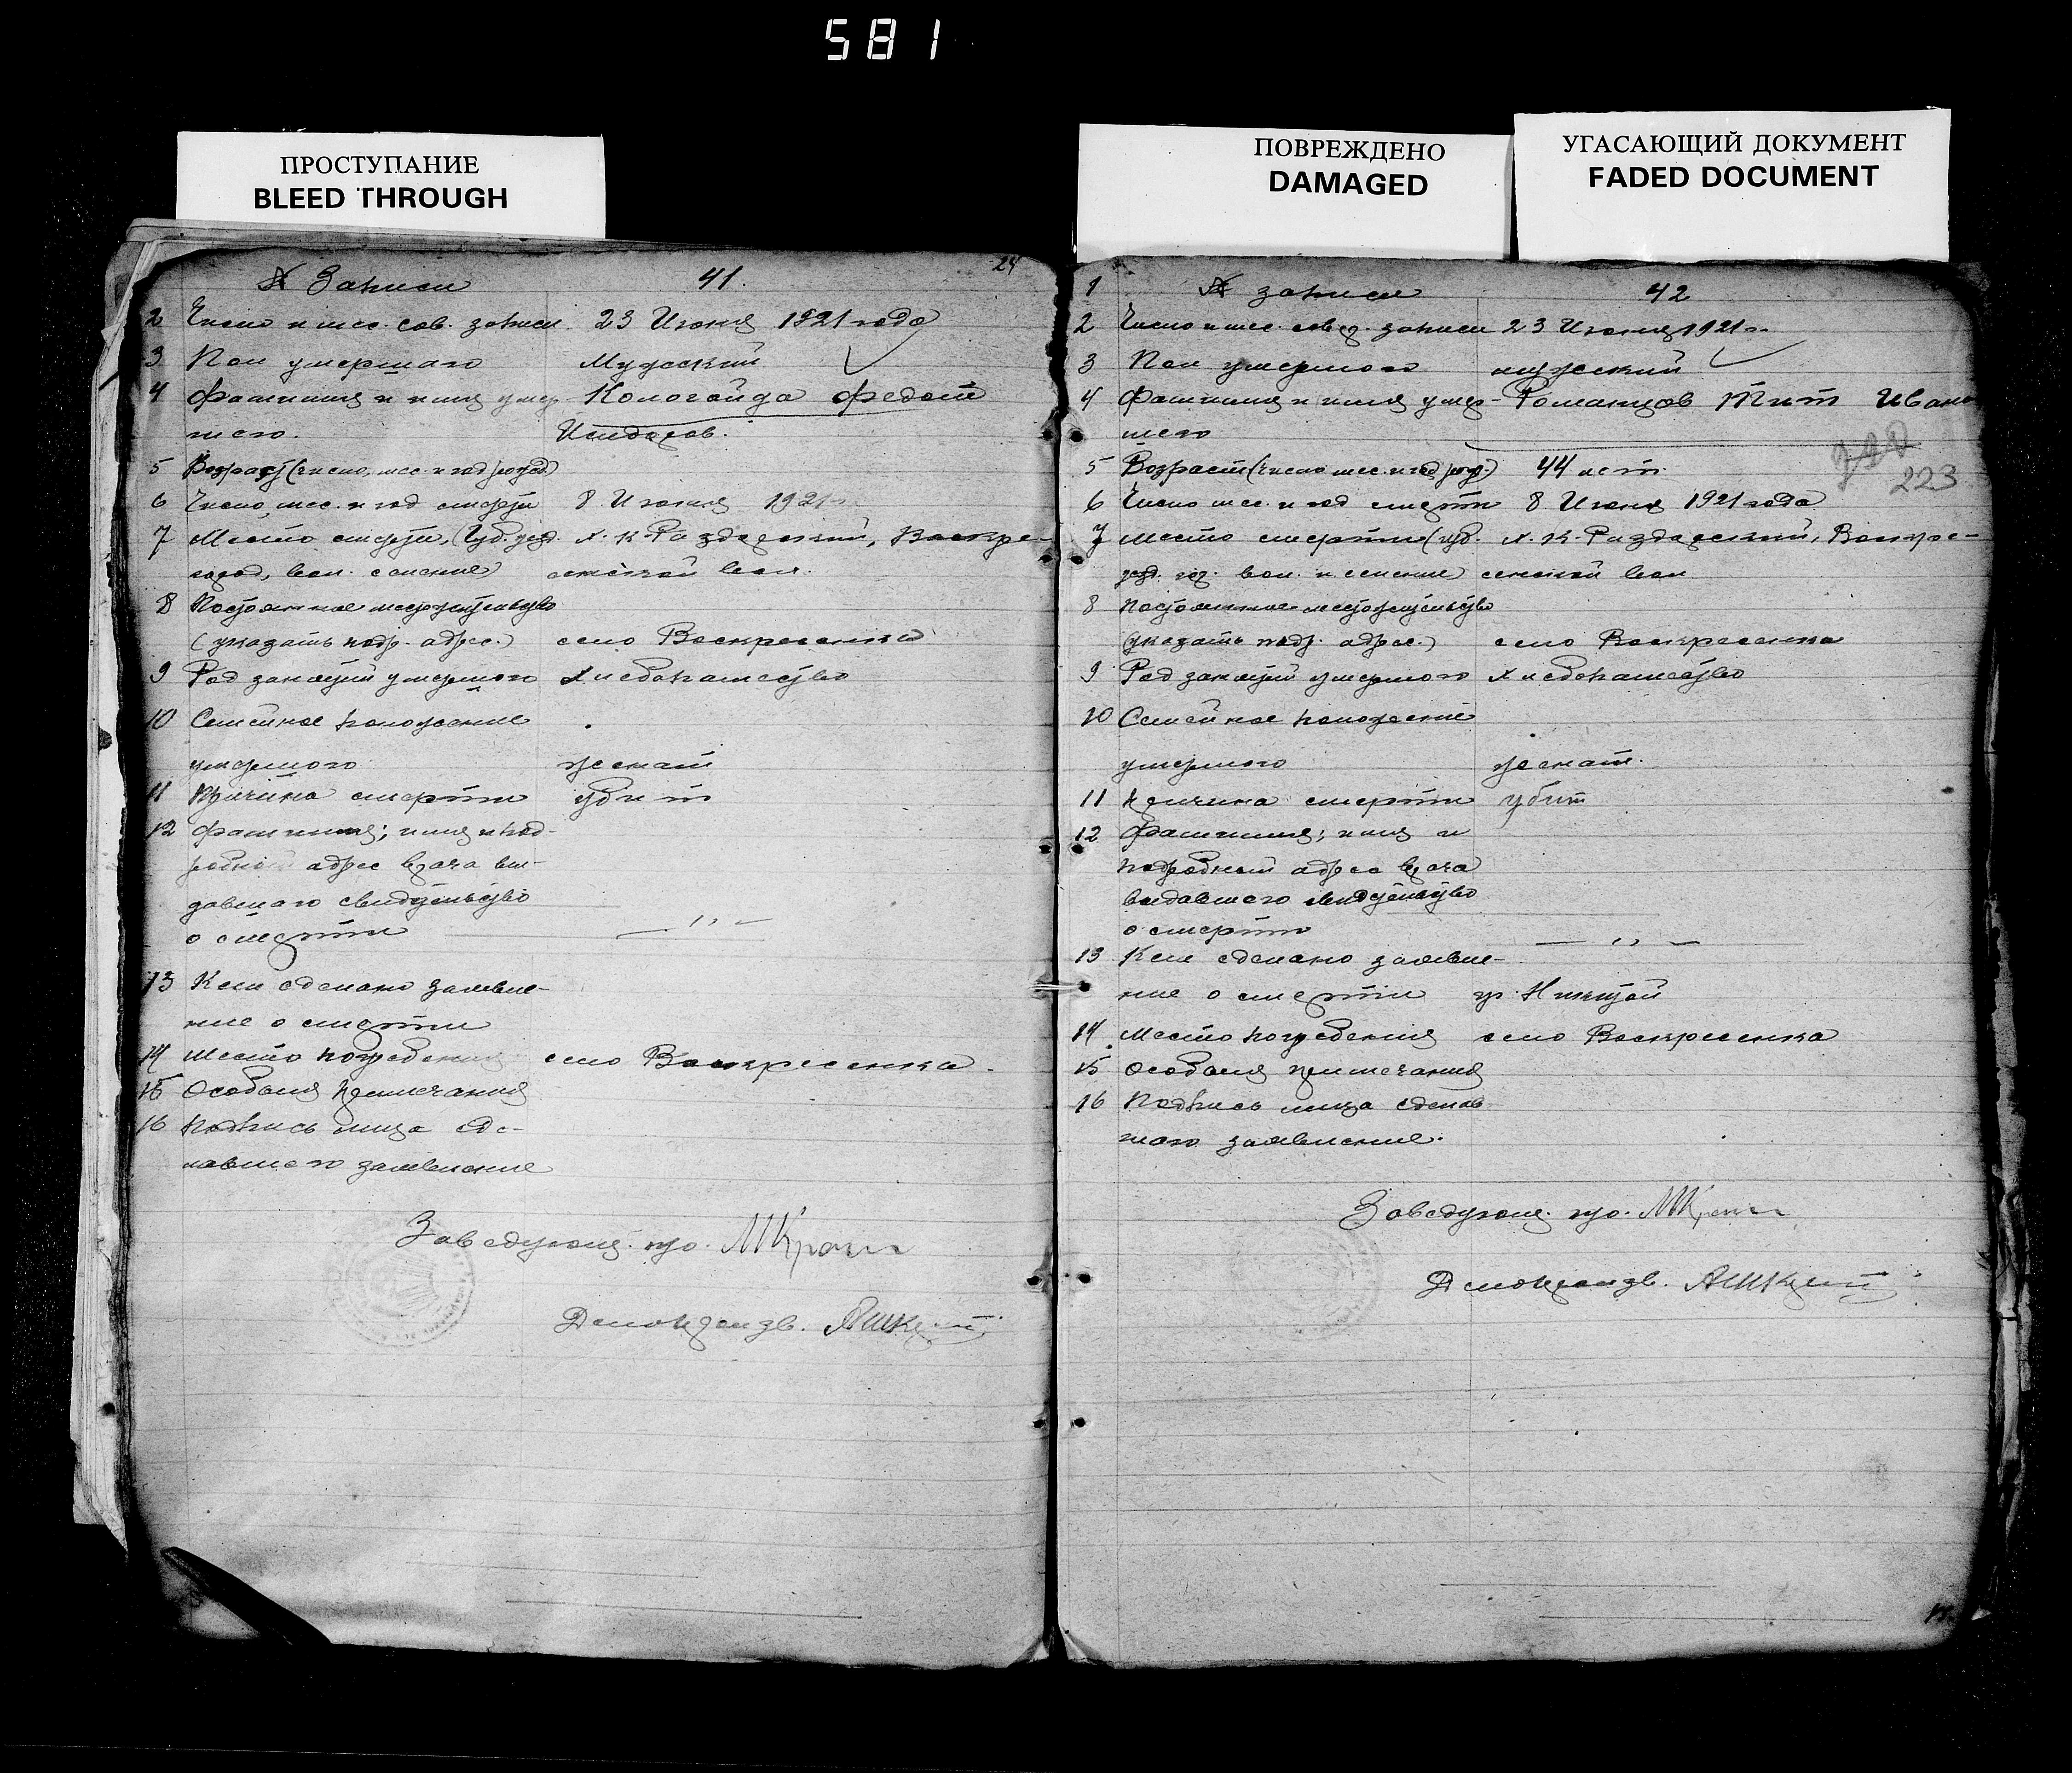 581
ПРОСТУПАНИЕ
BLEED THROUGH
ПОВРЕЖДЕНО
DAMAGED
УГАСАЮЩИЙ ДОКУМЕНТ
FADED DOCUMENT
24
№ Записи 41.
2 Число и мес. сов. записи 23 Июня 1921 года
3 Пол умершаго Мужской
4 Фамилия и имя умер- Кологойда Федот
шего.
5 Возраст (число, мес. и год рожд.)
6 Число, мес. и год смерти 8 Июня 1921 г.
7 Место смерти, (Губ. уезд. х. к-Раздорский, Воскре-
город, вол. селение) сенской вол.
8 Постоянное местожительство
(указать подр. адрес.) село Воскресенка
9 Род занятий умершого Хлебопашество
10 Семейное положение
умершого женат
11 Причина смерти убит
12 Фамилия; имя и под-
робной адрес врача вы-
давшого свидетельство
о смерти — " —
13 Кем сделано заявле-
ние о смерти
14 Место погребения село Воскресенка.
15 Особыя примечания
16 Подпись лица сде-
лавшего заявление
Заведующ.
Делопроизв.
1 № записи 42
2 Число и мес. сов. записи 23 Июня 1921 г.
3 Пол умершого мужский
4 Фамилия и имя умер- Романцов Тит Ивано
шего
5 Возраст (число мес. и год рожд.) 44 лет.
223
6 Число мес. и год смерти 8 Июня 1921 года
7 Место смерти (губ. х. К-Раздорский, Воскре-
уезд. гор. вол. и селение) сенской вол
8 Постоянное местожительство
(указать подр. адрес.) село Воскресенка
9 Род занятий умершого Хлебопашество
10 Семейное положение
умершого женат.
11 Причина смерти убит
12 Фамилия; имя и
подробный адрес врача
выдавшего свидетельство
о смерти — " —
13 Кем сделано заявле-
ние о смерти
14 Место погребения село Воскресенка
15 Особыя примечания
16 Подпись лица сделав
шаго заявление.
Заведующ.
Делопроизв.